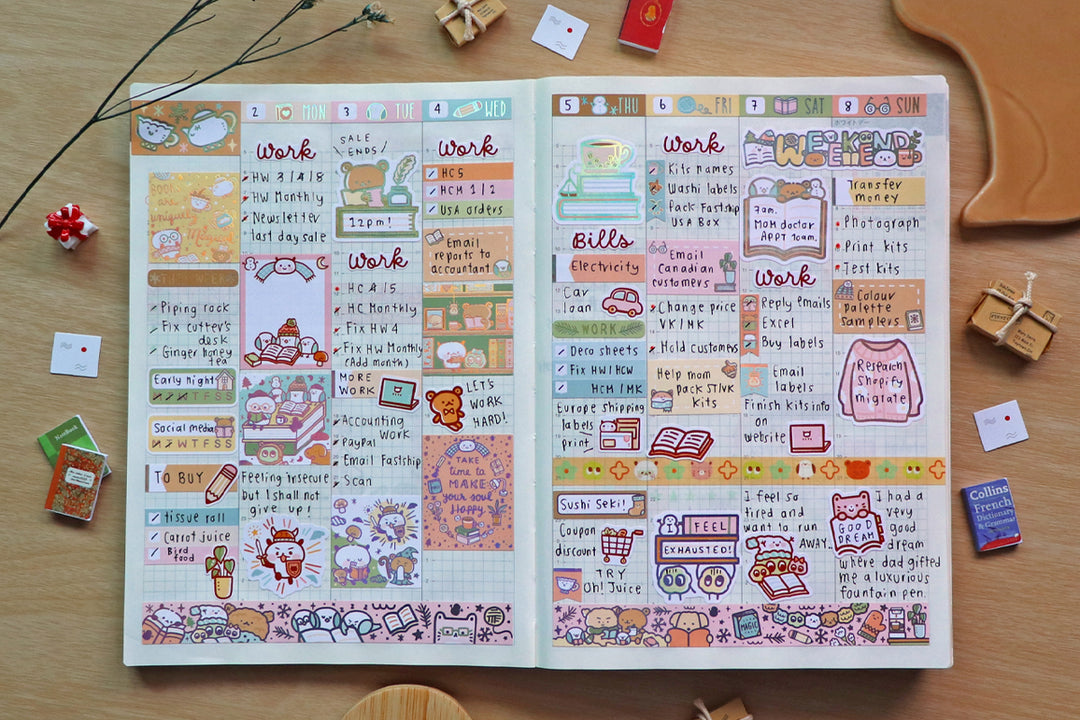 BOOKS
are
uniquely
Piping rock
Fix cutter's
desk
Ginger honey
tea
Early night
TFSS
Social media
WTFSS
TO BUY
tissue roll
Carrot juice
Bird
food
2 MON
Work
HW 3/4/8
HW Monthly
Newsletter
last day sale
Feeling insecure
but I shall not
give up!
3 TUE
SALE
ENDS
12pm!
Work
HC 4/5
HC Monthly
Fix HW4
Fix HW Monthly
(Add month)
MORE
WORK
Accounting
Work
PayPal
Email Fastship
Scan
4 WED
Work
HC5
HCM 1/2
USA orders
Email
reports to
accountant
LET'S
WORK
HARD!
TAKE
time to
MAKE
your soul
Happy
5 THU
Bills
Electricity
Car
loan
WORK
Deco sheets
Fix HW/HCW
HCM/MK
Europe shipping
labels
print
Sushi Seki!
Coupon
discount
TRY
Oh! Juice
6 FRI
Work
Kits names
Washi labels
Pack Fastship
USA Box
Email
Canadian
customers
Change price
VK/MK
Hold customers
Help mom
pack ST/VK
Kits
I FEEL
EXHAUSTED!
7 SAT
WEEKEND
7am.
MOM doctor
APPT 10am.
Work
Reply emails
Excel
Buy labels
Email
labels
Finish kits info
on
website
I feel so
tired and
want to run
AWAY.
8 SUN
ホワイトデー
Transfer
money
Photograph
Print kits
Test kits
Colour
palette
samplers
Research
Shopify
migrate
GOOD
DREAM
I had a
very
good
dream
where dad gifted
me a luxurious
fountain pen.
MAGIC
Collins
French
Dictionary
& Grammar